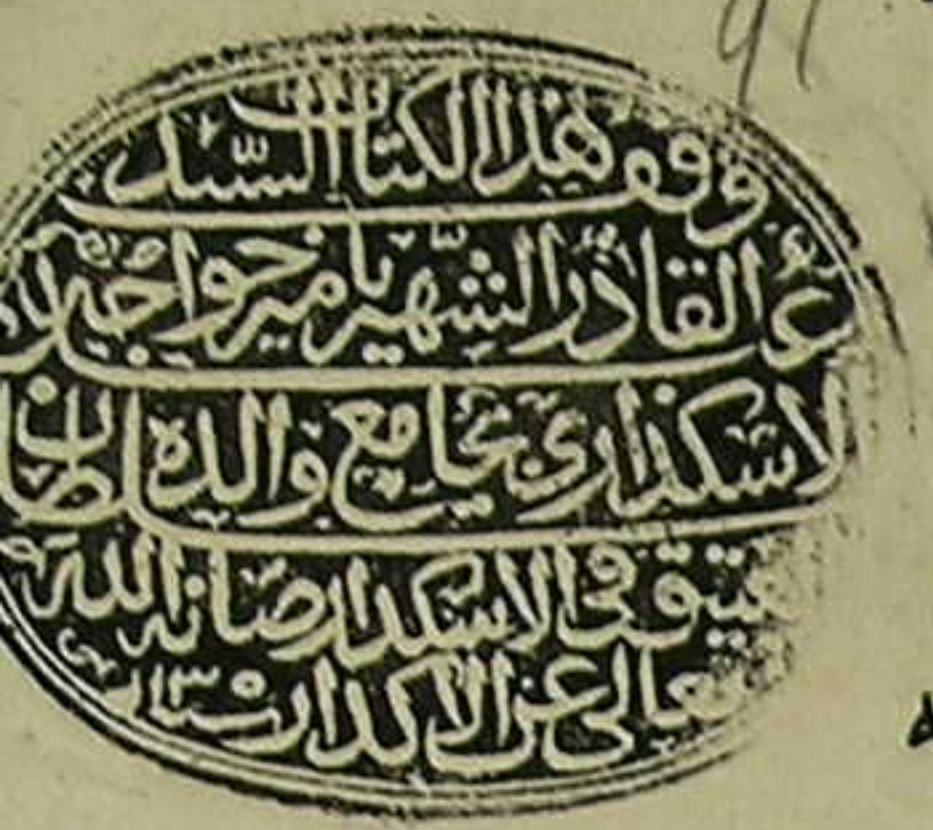 وقف هذا الكتاب السيد
عبد القادر الشهير بامير خواجه
الاسكداري بجامع والده سلطان
عتيق في الاسكدار صانه الله
تعالى عن الاكدار